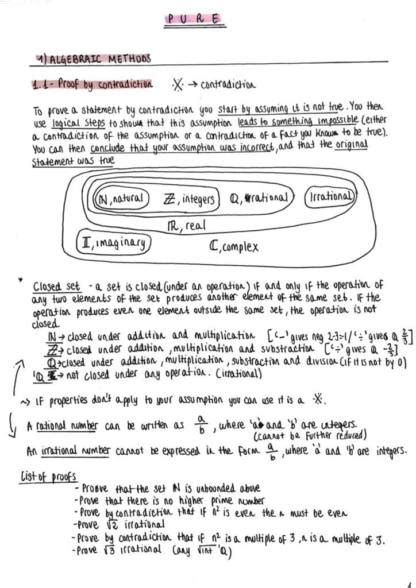 PURE
1) ALGEBRAIC METHODS
1.1- Proof by contradiction ·X· → contradiction
To prove a statement by contradiction you start by assuming it is not true. You then
use logical steps to show that this assumption leads to something impossible (either
a contradiction of the assumption or a contradiction of a fact you know to be true).
You can then conclude that your assumption was incorrect, and that the original
statement was true
ℕ, natural ℤ, integers ℚ, rational Irrational
ℝ, real
𝕀, imaginary ℂ, complex
* Closed set - a set is closed (under an operation) if and only if the operation of
any two elements of the set produces another element of the same set. If the
operation produces even one element outside the same set, the operation is not
closed.
ℕ → closed under addition and multiplication ['-' gives neg 2-3=-1/'÷' gives ℚ 2/3]
ℤ → closed under addition, multiplication and substraction ['÷' gives ℚ -2/3]
ℚ → closed under addition, multiplication, substraction and division (if it is not by 0)
'ℚ → not closed under any operation. (irrational)
→ If properties don't apply to your assumption you can use it is a ·X·
A rational number can be written as a/b, where 'a' and 'b' are integers.
(cannot be further reduced)
An irrational number cannot be expressed in the form a/b, where 'a' and 'b' are integers.
List of proofs
- Prove that the set ℕ is unbounded above
- Prove that there is no higher prime number
- Prove by contradiction that if n² is even the n must be even
- Prove √2 irrational
- Prove by contradiction that if n² is a multiple of 3, n is a multiple of 3.
- Prove √3 irrational (any √int 'ℚ)